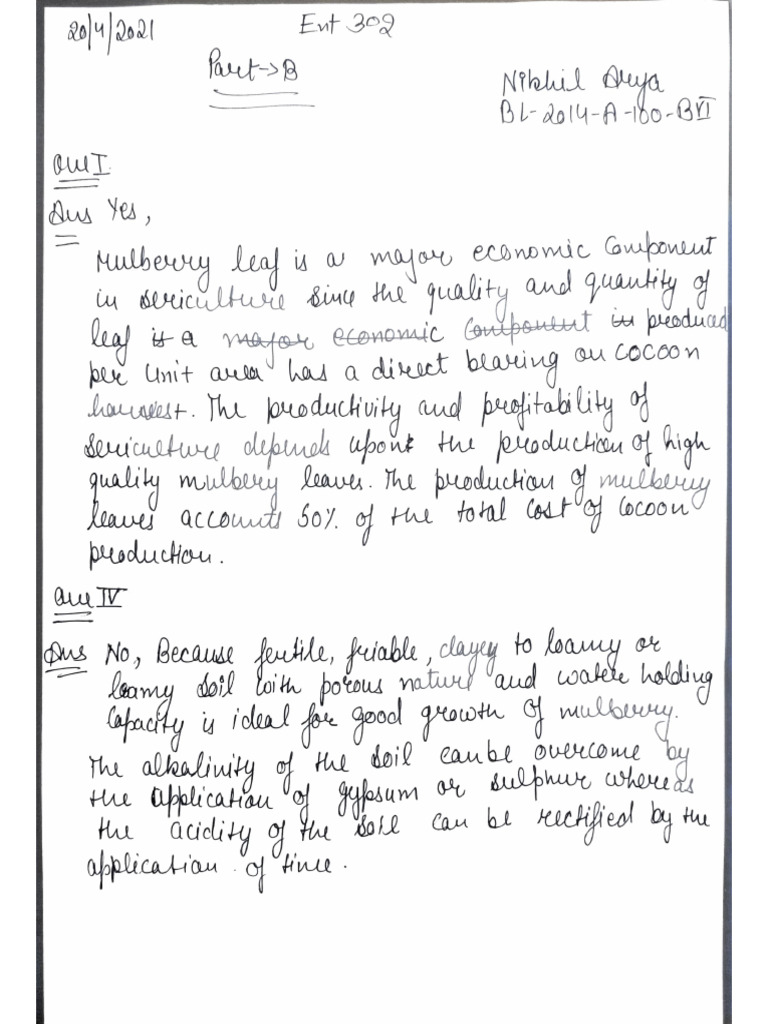 20/4/2021
Ent 302
Part→B
Nikhil Arya
BL-2014-A-100-BVI
Que I.
Ans Yes,
Mulberry leaf is a major economic component
in sericulture since the quality and quantity of
leaf is a major economic component in produced
per unit area has a direct bearing on cocoon
harvest. The productivity and profitability of
sericulture depends upon the production of high
quality mulbery leaves. The production of mulberry
leaves accounts 50% of the total cost of cocoon
production.
Que IV
Ans No, Because fertile, friable, clayey to loamy or
loamy soil with porous nature and water holding
capacity is ideal for good growth of mulberry.
The alkalinity of the soil can be overcome by
the application of gypsum or sulphur whereas
the acidity of the soil can be rectified by the
application of time.